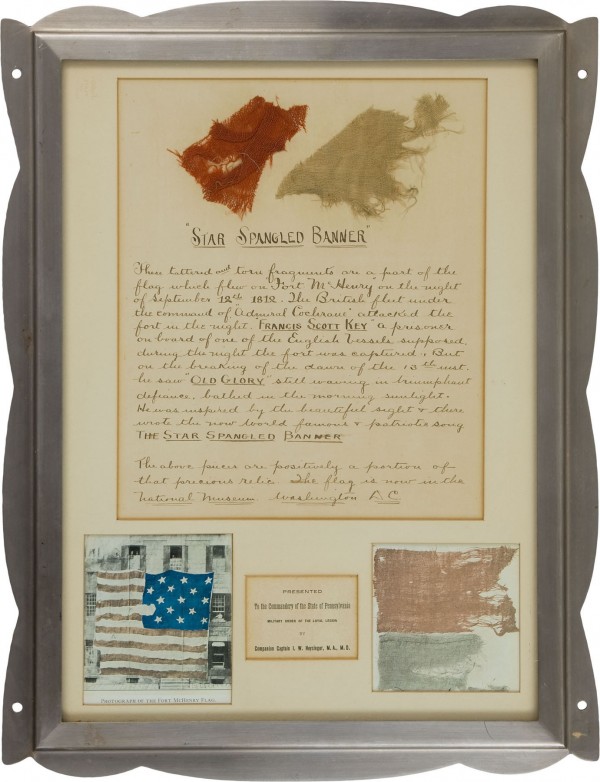 "STAR SPANGLED BANNER"
Then tattered and torn fragments are a part of the
flag which flew on "Fort McHenry" on the night
of September 12th 1812. The British fleet under
the command of Admiral Cochrane" attacked the
fort in the night. FRANCIS SCOTT KEY" a prisoner
on board of one of the English Vessels supposed
during the night the fort was captured, But
on the breaking of the dawn of the 13th inst.
he saw "OLD GLORY" still waving in triumphant
defiance, bathed in the morning sunlight.
He was inspired by the beautiful sight & there
wrote the now World famous & patriotic song
THE STAR SPANGLED BANNER
The above pieces are positively a portion of
that precious relic. The flag is now in the
National Museum Washington D.C.
PRESENTED
To the Commandery of the State of Pennsylvania
MILITARY ORDER OF THE LOYAL LEGION
BY
Companion Captain I. W. Heysinger, M. A., M. D.
PHOTOGRAPH OF THE FORT MCHENRY FLAG.